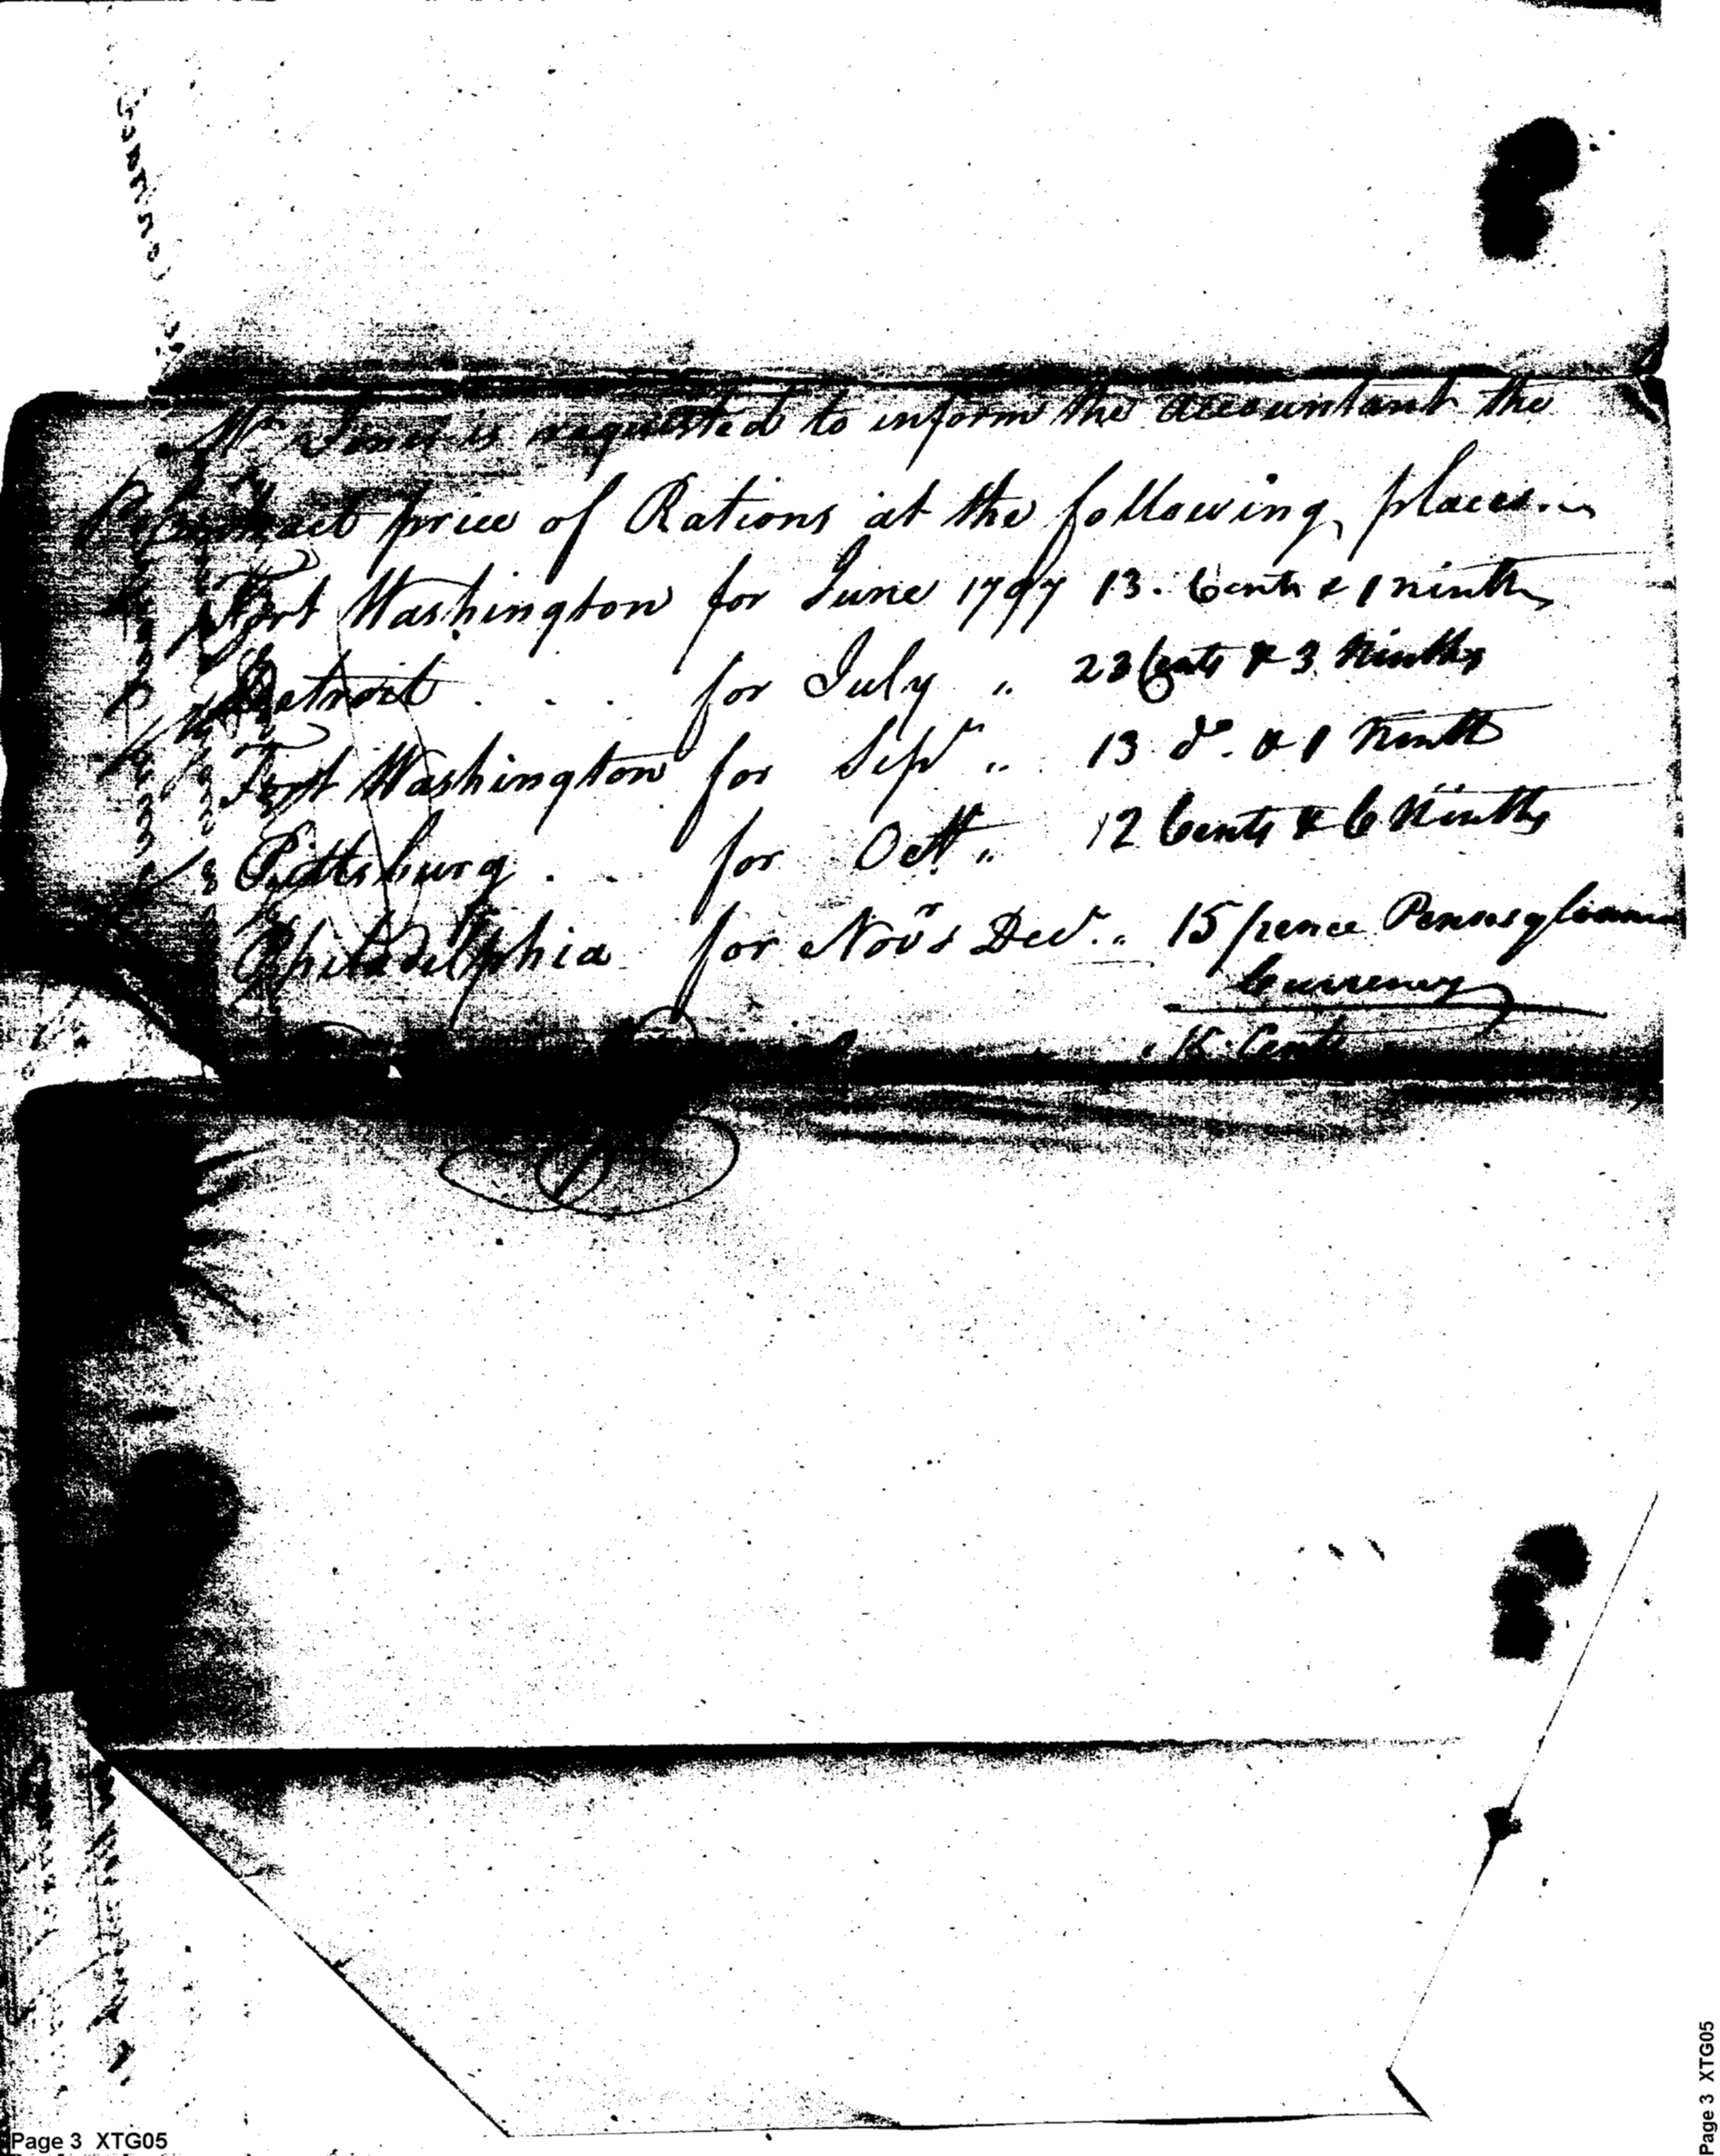 Mr Jones is requested to inform the accountant the
Contract price of Rations at the following places.
Fort Washington for June 1797 13. Cents & 1 ninth
Detroit . . . for July " 23 Cents & 3 Ninths
Fort Washington for Sepr " 13 do. & 1 Ninth
Pittsburg . . for Octr " 12 Cents & 6 Ninths
Philadelphia for Novr & Decr. " 15 pence Pennsylvania
Currency
Cents
Page 3 XTG05
Page 3 XTG05